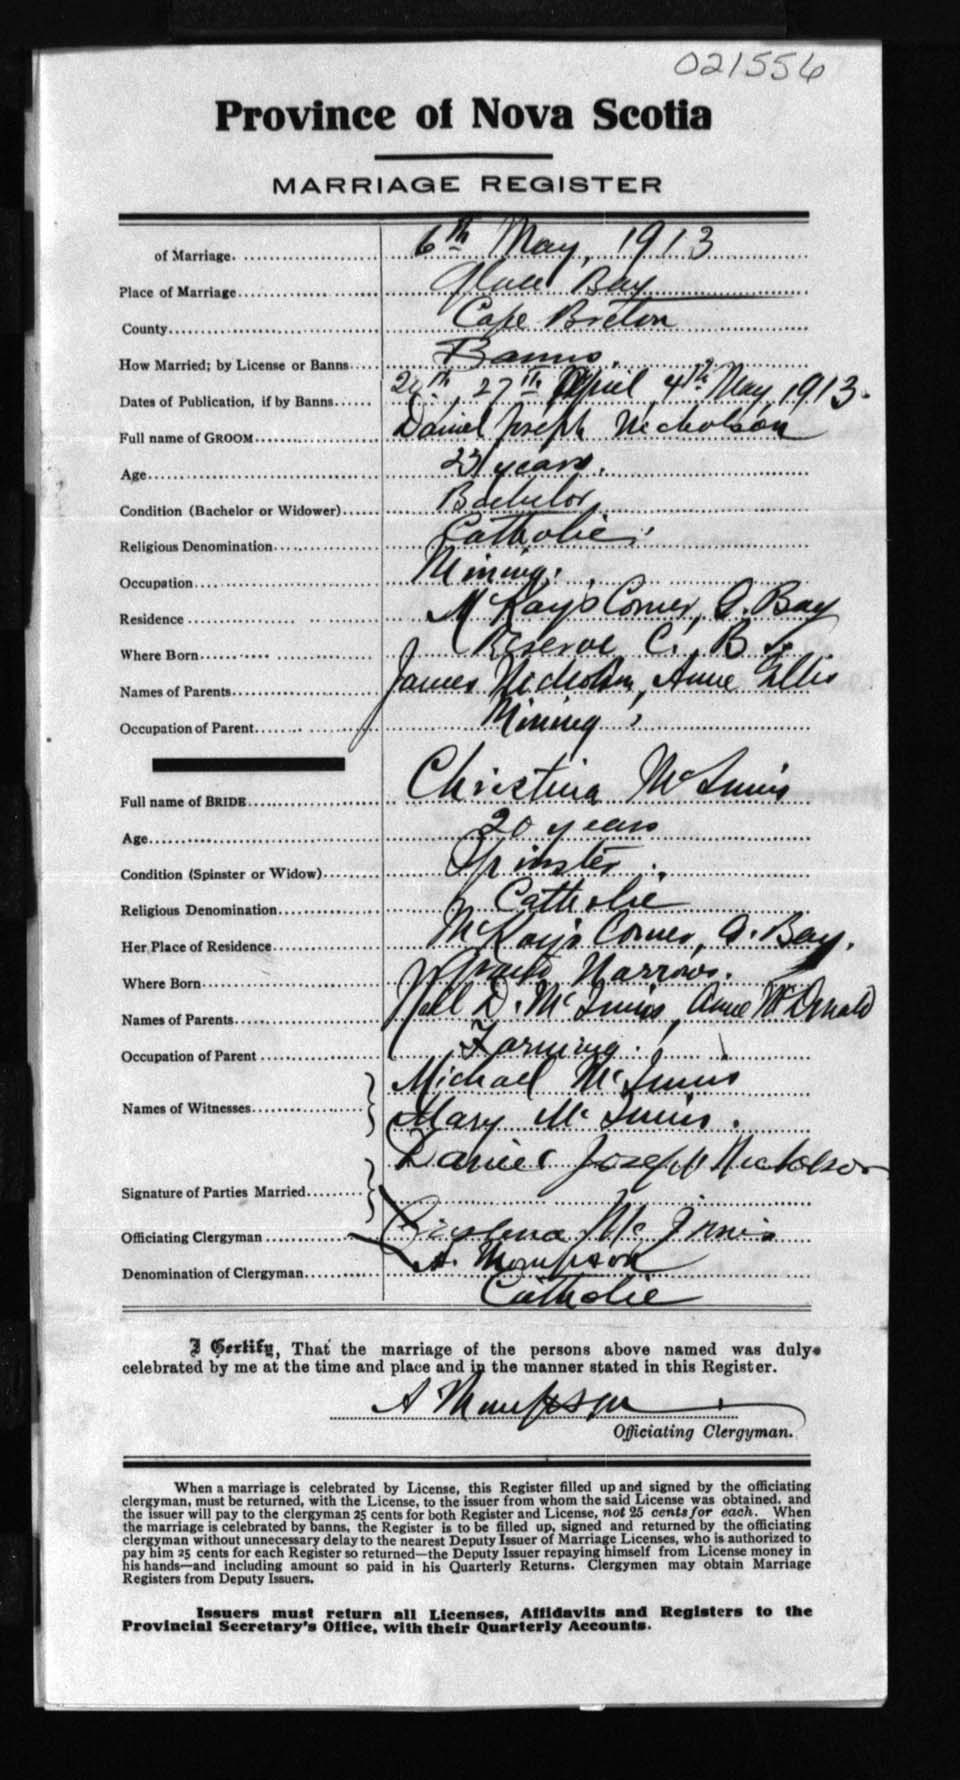 021556
Province of Nova Scotia
MARRIAGE REGISTER
of Marriage. 6th May, 1913
Place of Marriage Glace Bay
County Cape Breton
How Married; by License or Banns Banns.
Dates of Publication, if by Banns 20th, 27th April, 4th May, 1913.
Full name of GROOM Daniel Joseph Nicholson
Age 23 years.
Condition (Bachelor or Widower) Bachelor
Religious Denomination Catholic
Occupation Mining.
Residence McKay's Corner, G. Bay
Where Born Reserve C. B.
Names of Parents James Nicholson, Anne Ellis
Occupation of Parent Mining
Full name of BRIDE Christina McInnis
Age 20 years
Condition (Spinster or Widow) Spinster.
Religious Denomination Catholic
Her Place of Residence McKay's Corner, G. Bay.
Where Born Grand Narrows.
Names of Parents Neil D. McInnis, Anne McDonald
Occupation of Parent Farming.
Names of Witnesses Michael McInnis
Mary McInnis.
Signature of Parties Married Daniel Joseph Nicholson
McInnis
Officiating Clergyman A. Thompson
Denomination of Clergyman Catholic
I Certify, That the marriage of the persons above named was duly
celebrated by me at the time and place and in the manner stated in this Register.
A Thompson
Officiating Clergyman.
When a marriage is celebrated by License, this Register filled up and signed by the officiating
clergyman, must be returned, with the License, to the issuer from whom the said License was obtained, and
the issuer will pay to the clergyman 25 cents for both Register and License, not 25 cents for each. When
the marriage is celebrated by banns, the Register is to be filled up, signed and returned by the officiating
clergyman without unnecessary delay to the nearest Deputy Issuer of Marriage Licenses, who is authorized to
pay him 25 cents for each Register so returned—the Deputy Issuer repaying himself from License money in
his hands—and including amount so paid in his Quarterly Returns. Clergymen may obtain Marriage
Registers from Deputy Issuers.
Issuers must return all Licenses, Affidavits and Registers to the
Provincial Secretary's Office, with their Quarterly Accounts.